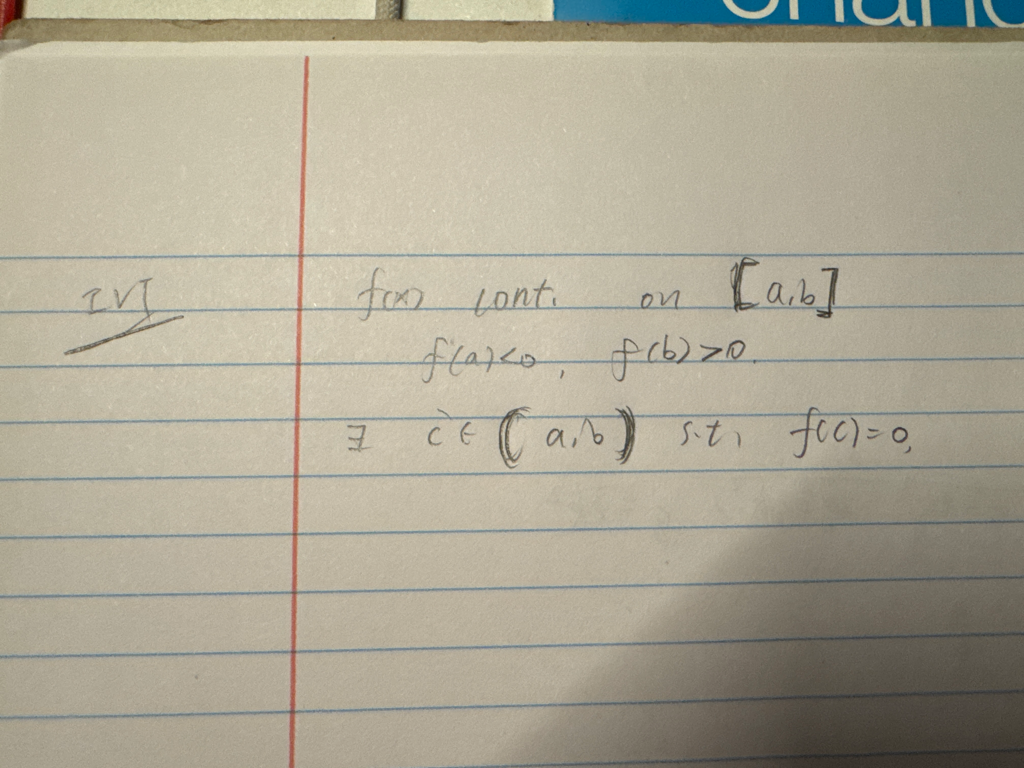 IVT f(x) cont. on [a,b]
f(a)<0, f(b)>0.
∃ c ∈ (a,b) s.t. f(c)=0,